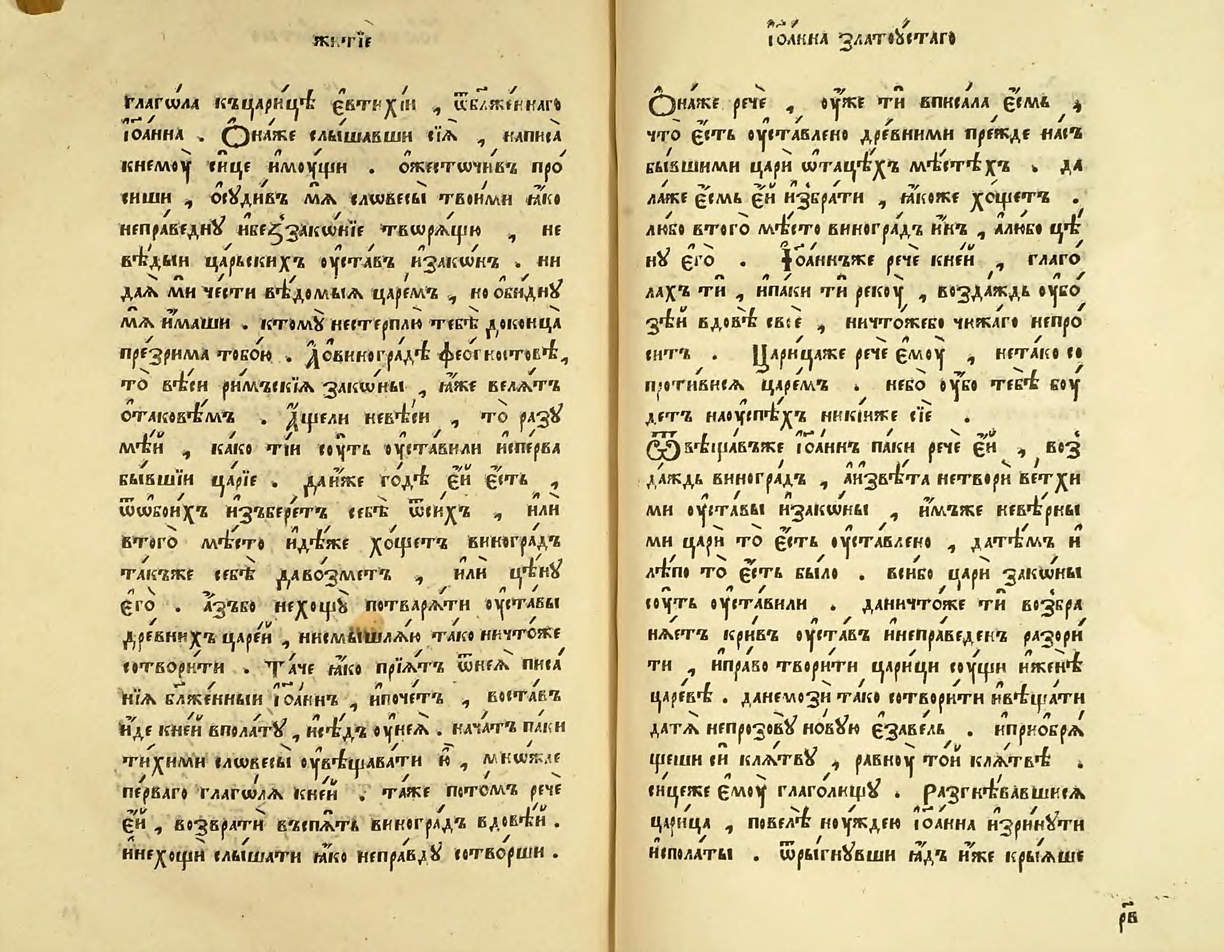 житїе
глаго́ла къцари́цѣ є҆втихі́и , ѿбл҃же́ннаго
і҆оа́нна . Ѻ҆на́же слы́шавши сїѧ̀ , написа̀
кнемоу̀ си́це и҆моу́щи . ѻ҆жесточи́въ про́
сиши , ѻ҆сꙋди́въ мѧ̀ словесы̀ твои́ми ꙗ҆́ко
непра́веднꙋ и҆беꙁꙁако́нїе творѧ́щꙋю , не
вѣ́дыи ца́рьскихъ оу҆ста́въ и҆ꙁако́нъ . ни
даѧ̀ ми че́сти вѣ́домыѧ царе́мъ , но ѻ҆би́днꙋ
мѧ̀ и҆́маши . ктомꙋ̀ нестерплю̀ тебѣ̀ доконца̀
преꙁрима тобо́ю . Довиногра́дѣ феогностовѣ,
то вѣ́си ри́мъскїѧ ꙁако́ны , ꙗ҆́же велѧ́тъ
ѻ҆тако́вѣмъ . А҆́щели невѣ́си , то раꙁꙋ
мѣ́й , ка́ко ті́и соу́ть оу҆ста́вили и҆спе́рва
бы́вшїи ца́рїе . дай́же го́дѣ є҆́й є҆́сть ,
ѿѡ҆бои́хъ и҆ꙁъбере́тъ себѣ̀ ѿси́хъ , и҆лѝ
втого̀ мѣ́сто и҆дѣ́же хо́щетъ виногра́дъ
та́къже себѣ̀ даво́ꙁметъ , и҆лѝ цѣ́нꙋ
є҆го̀ . а҆́ꙁъбо нехощꙋ̀ потварѧ́ти оу҆ста́вы
дре́внихъ царе́й , нисмышлѧ́ю та́ко ничто́же
сотвори́ти . Та́че ꙗ҆́ко прїѧ́тъ ѿнеѧ̀ писа́
нїѧ бл҃же́нныи і҆оа́ннъ , и҆поче́тъ , воста́въ
и҆́де кне́й впола́тꙋ , и҆сѣ́дъ оу҆неѧ̀ . нача́тъ па́ки
ти́хими словесы̀ оу҆вѣщава́ти ю҆̀ , мно́жае
пе́рваго глаго́лѧ кне́й . та́же пото́мъ речѐ
є҆́й , воꙁвратѝ въспѧ́ть виногра́дъ вдовѣ́й .
и҆нехощѝ слы́шати ꙗ҆́ко непра́вдꙋ сотво́рши .
і҆оа́нна ꙁлатоꙋ́стаго
Ѻ҆на́же речѐ , оу҆же тѝ вписа́ла є҆́смь ,
что є҆́сть оу҆ста́влено дре́вними пре́жде на́съ
бы́вшими царѝ ѡ҆тацѣ́хъ мѣ́стѣхъ . да
ла́же є҆́смь є҆́й и҆ꙁбра́ти , ꙗ҆́коже хо́щетъ .
лю́бо втого̀ мѣ́сто виногра́дъ и҆́нъ , а҆лю́бо цѣ́
нꙋ є҆го̀ . І҆оа́ннъже речѐ кне́й , глаго́
лахъ тѝ , и҆па́ки тѝ рекоу̀ , воꙁда́ждь оу҆́бо
ꙁѣ́й вдовѣ̀ своѐ , ничто́жебо чижа́го непро́
ситъ . Цари́цаже речѐ є҆моу̀ , нета́ко со
проти́висѧ царе́мъ . небо̀ оу҆́бо тебѣ̀ боу́
детъ наоу҆спѣ́хъ ники́иже сїѐ .
Ѿвѣща́въже і҆оа́ннъ па́ки речѐ є҆́й , воꙁ
да́ждь виногра́дъ , а҆иꙁвѣ́та нетворѝ ве́тхи
ми оу҆ста́вы и҆ꙁако́ны , и҆́мъже невѣ́рны
ми царѝ то є҆́сть оу҆ста́влено , датѣ́мъ и҆
лѣ́по то є҆́сть бы́ло . вси́бо царѝ ꙁако́ны
соу́ть оу҆ста́вили . даничто́же тѝ воꙁбра
нѧ́етъ кри́въ оу҆ста́въ и҆непра́веденъ раꙁори́
ти , и҆пра́во твори́ти цари́ци соу́щи и҆женѣ̀
царе́вѣ . данемоꙁѝ та́ко сотвори́ти и҆вѣща́ти
датѧ̀ непроꙁовꙋ̀ но́вꙋю є҆ꙁаве́ль . и҆приобрѧ́
щеши си́ клѧ́твꙋ , равноу̀ то́й клѧ́твѣ .
си́цеже є҆моу̀ глаго́лющꙋ . Раꙁгнѣ́вавшисѧ
цари́ца , повелѣ̀ ноу́ждею і҆оа́нна иꙁри́нꙋти
и҆спола́ты . ѿры́гнꙋвши ꙗ҆́дъ и҆́же кры́ѧше
рв